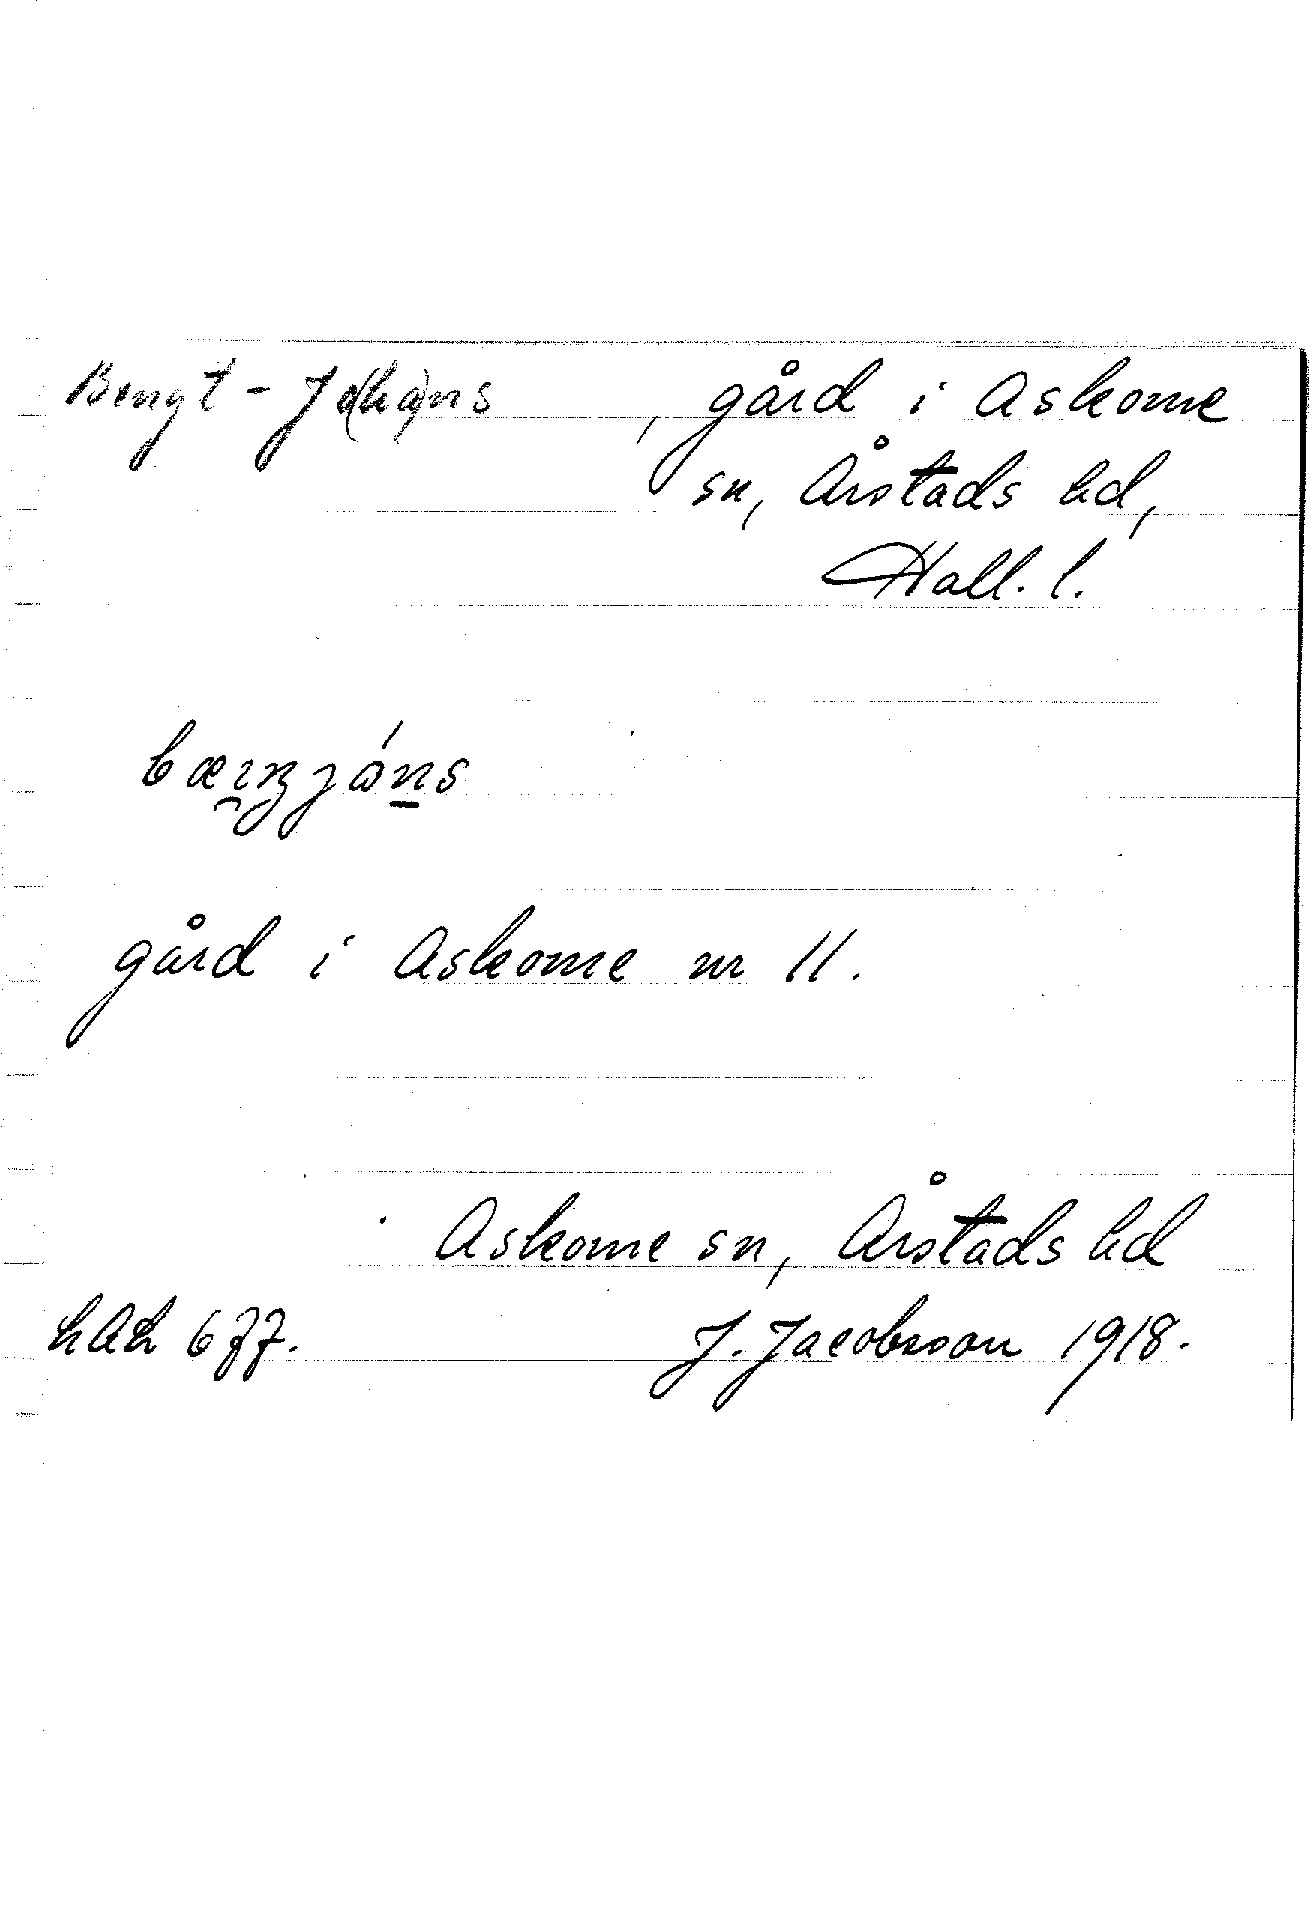 Bengt-Jo(ha)ns, gård i Askome
sn, Årstads hd,
Hall. l.
gård i Askome nr 11.
Askome sn, Årstads hd
LAL 677. J. Jacobsson 1918.